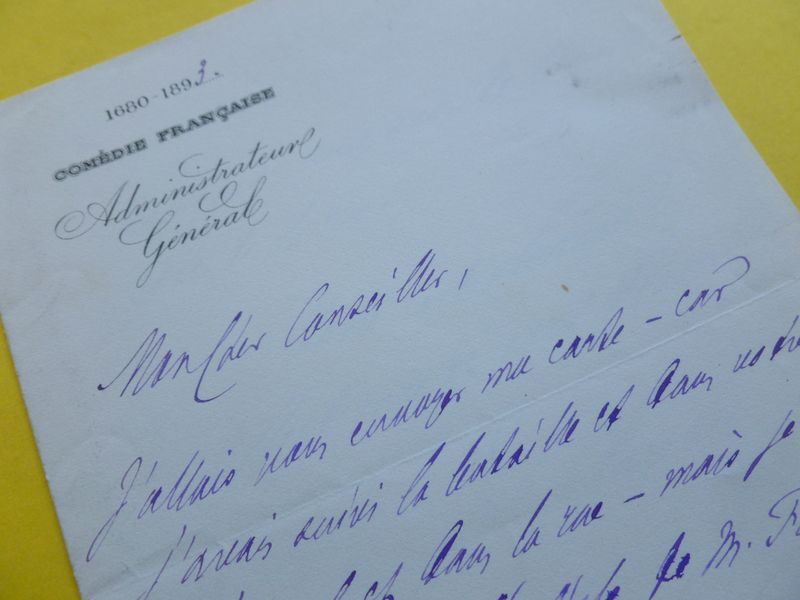 1680-1893.
COMÉDIE FRANÇAISE
Administrateur
Général
Mon Cher Conseiller,
J'allais vous envoyer ma carte - car
j'avais suivi la bataille et dans votre
dans la rue - mais je
de M.